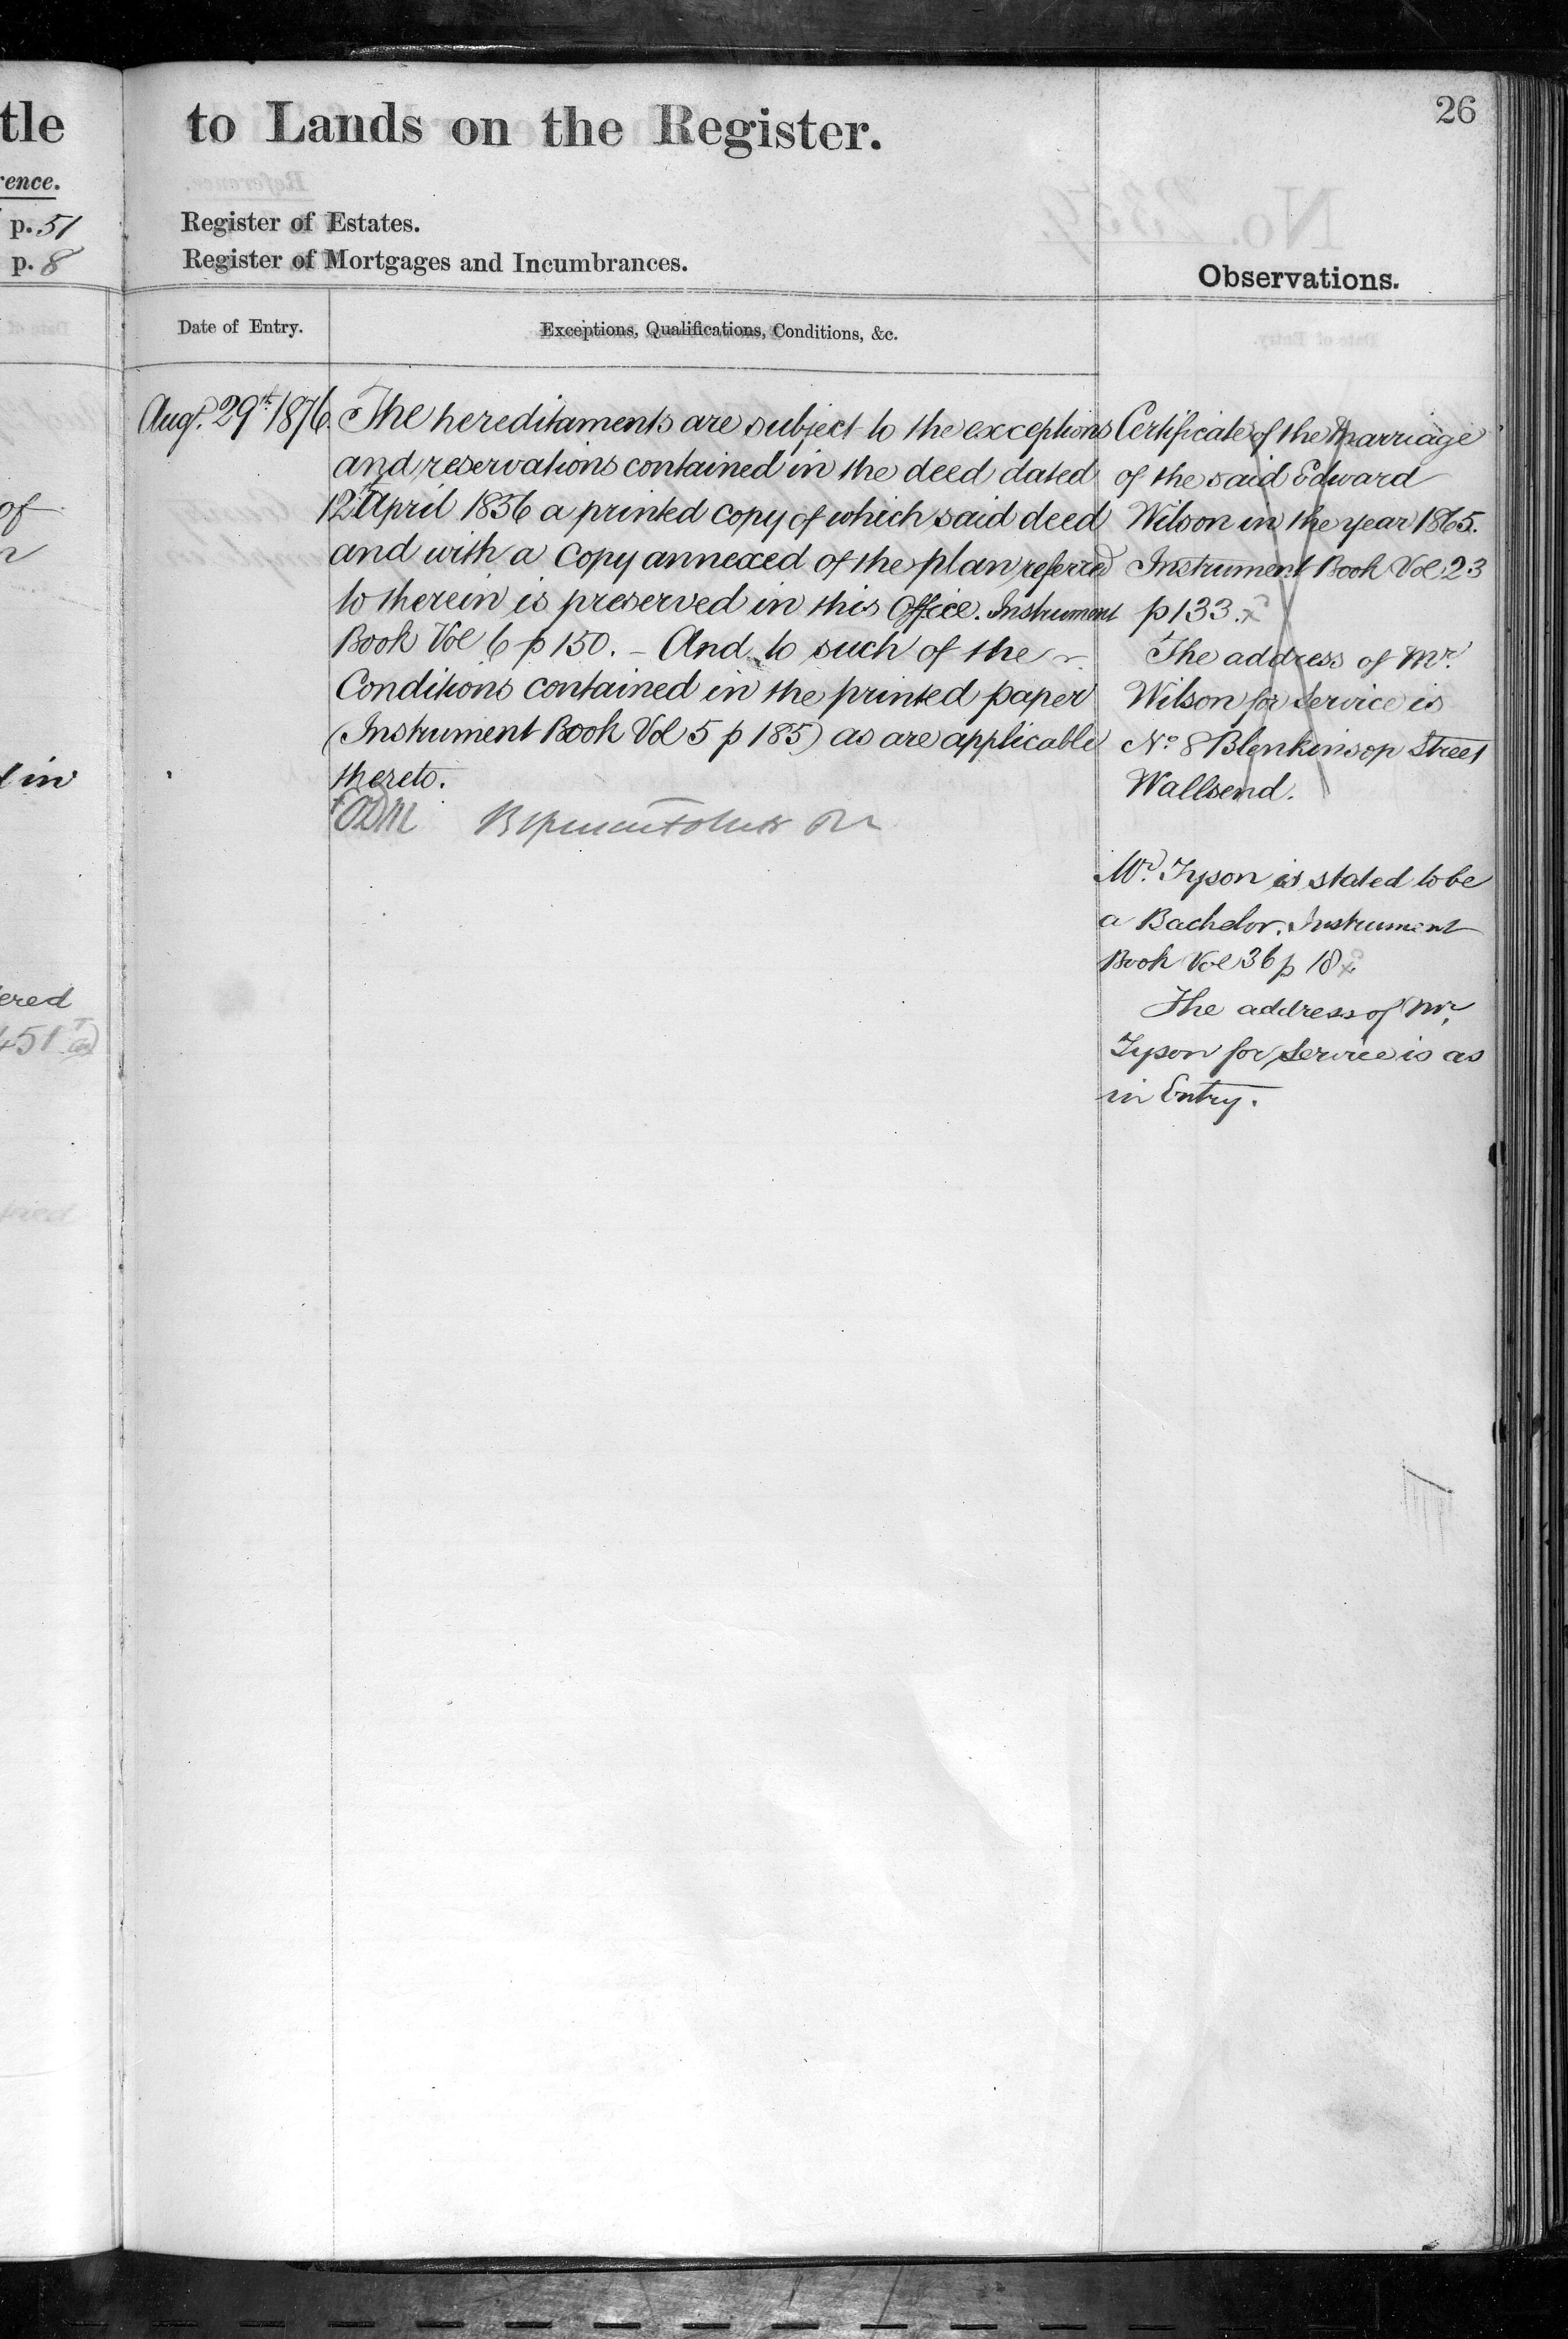 tle
rence.
p. 51
p. 8
of
in
ered
451
to Lands on the Register.
26
Register of Estates.
Register of Mortgages and Incumbrances.
Observations.
Date of Entry.
Exceptions, Qualifications, Conditions, &c.
Augt. 29th 1876.
The hereditaments are subject to the exceptions
and reservations contained in the deed dated
12th April 1856 a printed copy of which said deed
and with a Copy annexed of the plan referred
to therein is preserved in this Office. Instrument
Book Vol 6 p 150. – And to such of the
Conditions contained in the printed paper
(Instrument Book Vol 5 p 185) as are applicable
thereto.
Certificate of the Marriage
of the said Edward
Wilson in the year 1865.
Instrument Book Vol 23
p 133.
The address of Mr.
Wilson for Service is
No 8 Blenkinsop Street
Wallsend.
Mr. Tyson is stated to be
a Bachelor. Instrument
Book Vol 36 p 18
The address of Mr.
Tyson for Service is as
in Entry.